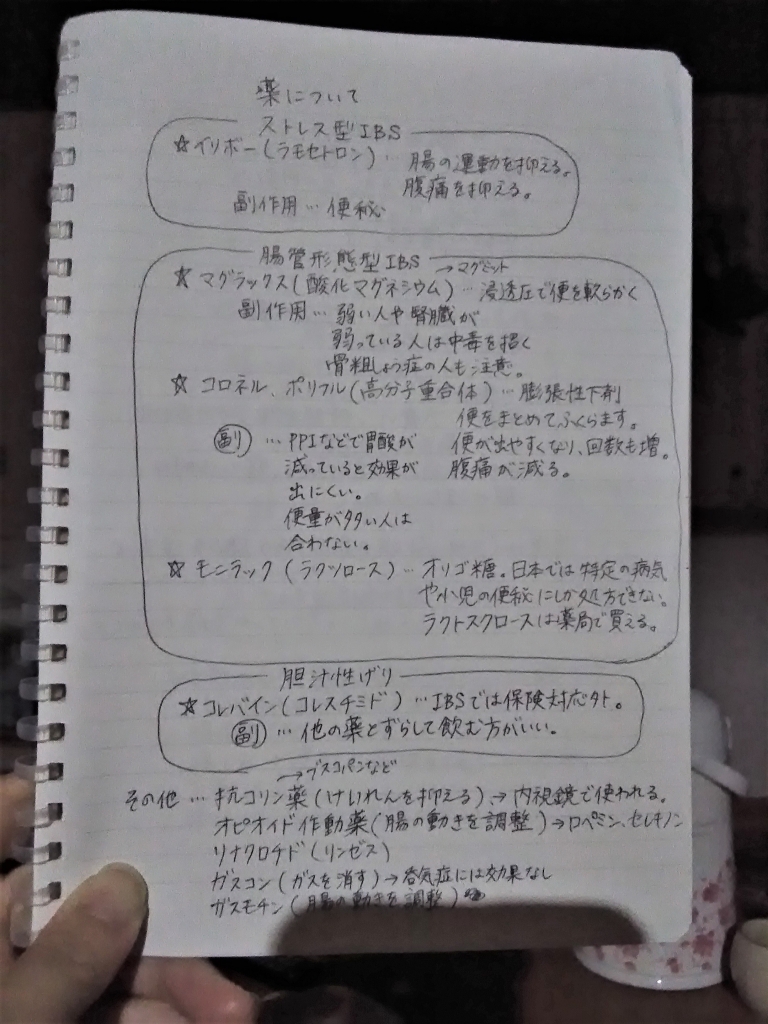 薬について
ストレス型IBS
☆イリボー(ラモセトロン)… 腸の運動を抑える。
腹痛を抑える。
副作用… 便秘
腸管形態型IBS →マグミット
☆マグラックス(酸化マグネシウム)… 浸透圧で便を軟らかく
副作用… 弱い人や腎臓が
弱っている人は中毒を招く
骨粗しょう症の人も注意。
☆コロネル、ポリフル(高分子重合体)… 膨張性下剤
便をまとめてふくらます。
副 … PPIなどで胃酸が 便が出やすくなり、回数も増。
減っていると効果が 腹痛が減る。
出にくい。
便量が多い人は
合わない。
☆モニラック(ラクツロース)… オリゴ糖。日本では特定の病気
や小児の便秘にしか処方できない。
ラクトスクロースは薬局で買える。
胆汁性げり
☆コレバイン(コレスチミド)… IBSでは保険対応外。
副 … 他の薬とずらして飲む方がいい。
→ブスコパンなど
その他 … 抗コリン薬(けいれんを抑える)→内視鏡で使われる。
オピオイド作動薬(腸の動きを調整)→ロペミン、セレキノン
リナクロチド(リンゼス)
ガスコン(ガスを消す)→呑気症には効果なし
ガスモチン(腸の動きを調整)